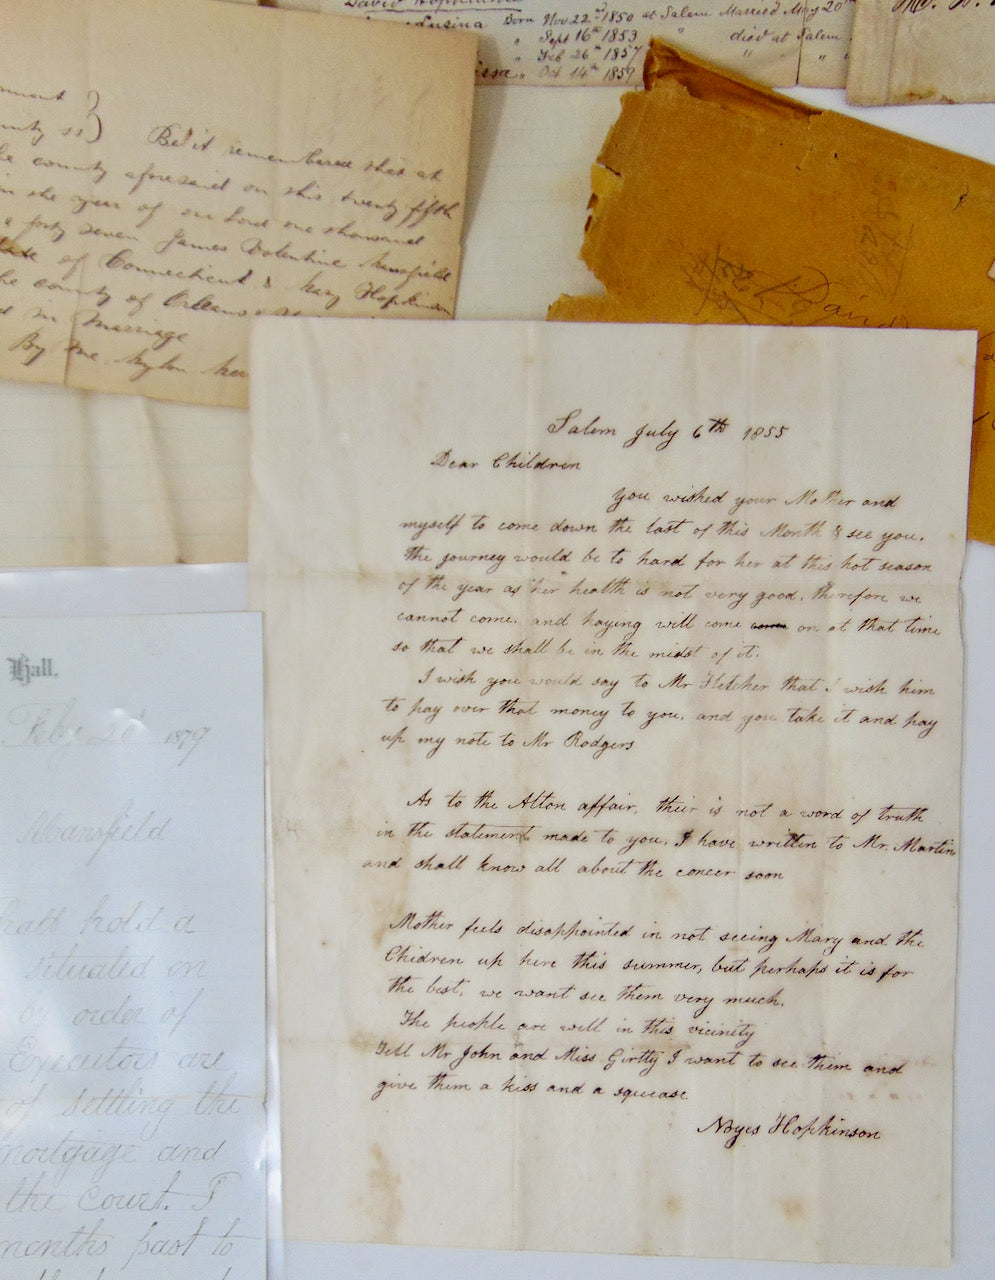 David Hopkinson
Lusina Born Nov 22nd 1850 at Salem Married May 20th
" Sept 16th 1853 " died at Salem
" Feb 26th 1857 " " " "
" Oct 14th 1859
ss } Be it remembered that at
county aforesaid on this twenty fifth
in the year of our Lord one thousand
forty seven James Valentine Mansfield
of Connecticut & Mary Hopkinson
the county of Orleans &
in Marriage
By me
David
Salem July 6th 1855
Dear Children
You wished your Mother and
myself to come down the last of this Month & see you.
the journey would be to hard for her at this hot season
of the year as her health is not very good. therefore we
cannot come. and haying will come come on at that time
so that we shall be in the midst of it.
I wish you would say to Mr Fletcher that I wish him
to pay over that money to you, and you take it and pay
up my note to Mr Rodgers
As to the Alton affair, their is not a word of truth
in the statement made to you. I have written to Mr. Martin
and shall know all about the concer soon
Mother feels disappointed in not seeing Mary and the
Chidren up here this summer, but perhaps it is for
the best, we want see them very much.
The people are well in this vicinity
Tell Mr John and Miss Girtty I want to see them and
give them a kiss and a squease
Noyes Hopkinson
Hall,
Feby 20 1879
Mansfield
hold a
situated on
by order of
Executors are
of settling the
mortgage and
the court. I
months past to